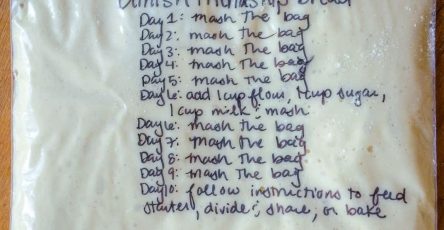 Amish Friendship Bread
Day 1: mash the bag
Day 2: mash the bag
Day 3: mash the bag
Day 4: mash the bag
Day 5: mash the bag
Day 6: add 1 cup flour, 1 cup sugar,
1 cup milk; mash
Day 6: mash the bag
Day 7: mash the bag
Day 8: mash the bag
Day 9: mash the bag
Day 10: follow instructions to feed
starter, divide; share, or bake